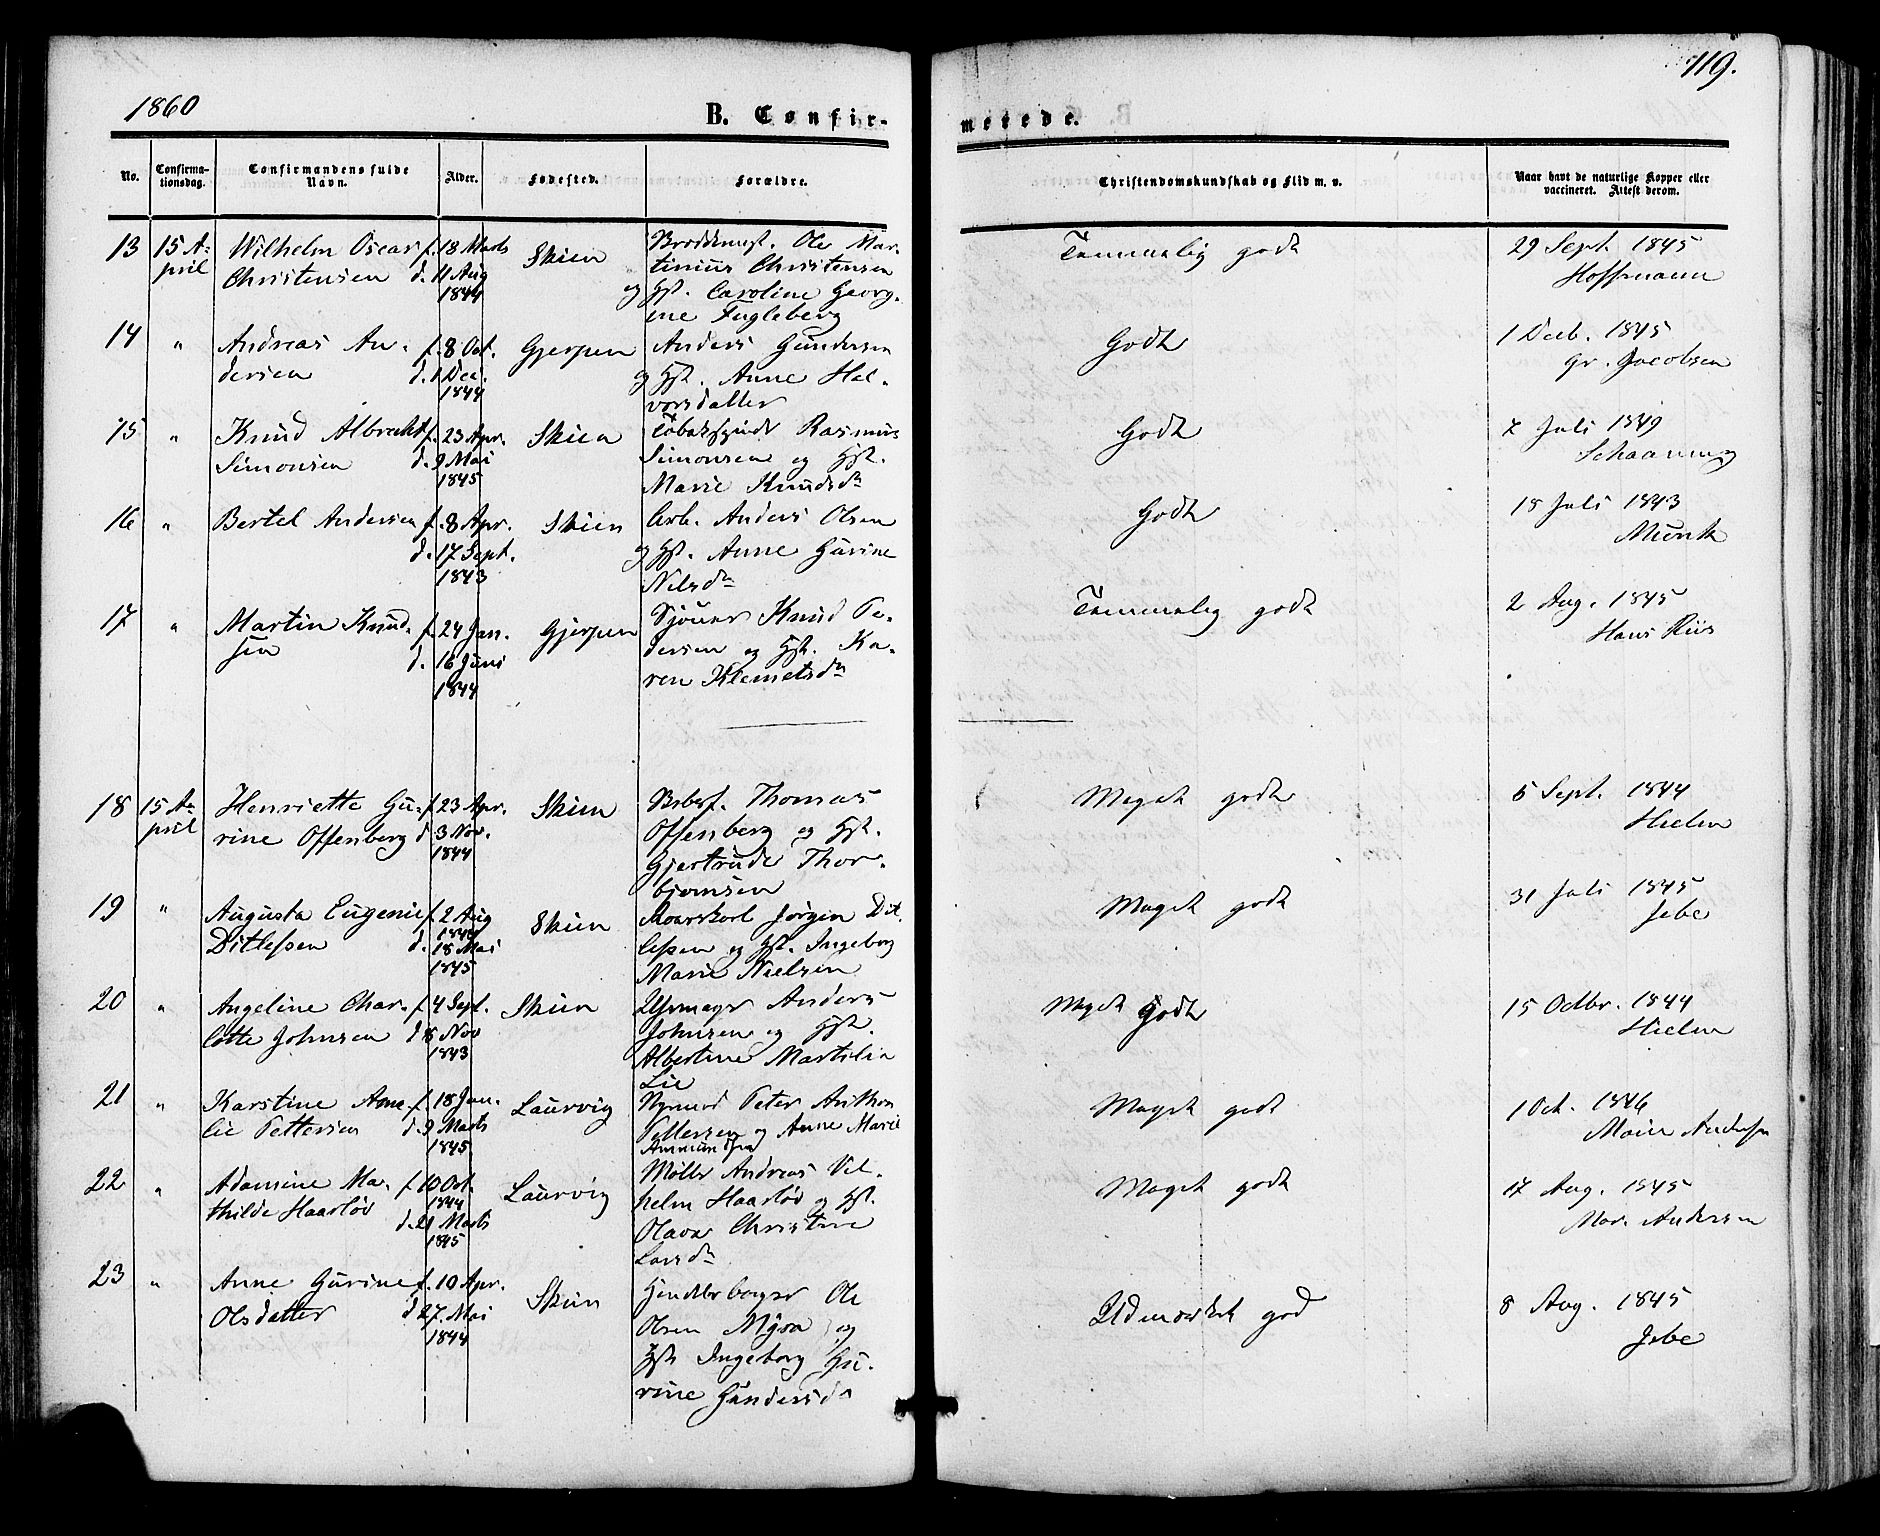 119.
1860
B. Confir-
merede.
No. Confirma-tionsdag. Confirmandens fulde Navn. Alder. Fødested. Forældre. Christendomskundskab og Flid m. v. Naar havt de naturlige Kopper eller vaccineret. Attest derom.
13 15 A- Wilhelm Oscar f. 18 Marts Skien Ole Mar- Temmelig godt 29 Sept. 1845
pril Christensen d. 11 Aug tinius Christensen Hoffmann
1844 og Hst. Caroline Georg-
ine Fugleberg
14 " Andreas An- f. 8 Oct. Gjerpen Anders Gundersen Godt 1 Decb. 1845
dersen d. 1 Dec. og Hst. Anne Hal- gr. Jacobsen
1844 vorsdatter
15 " Knud Albrecht f. 23 Apr. Skien Rasmus Godt 7 Juli 1849
Simonsen d. 9 Mai Simonsen og Hst. Schaanning
1845 Marie Knudsd
16 " Bertel Andersen f. 8 Apr. Skien Arb. Anders Olsen Godt 18 Juli 1843
d. 17 Sept. og Hst. Anne Gurine Munk
1843 Nilsd
17 " Martin Knud- f. 24 Jan. Gjerpen Knud Pe- Temmelig godt 2 Aug. 1845
sen d. 16 Juni dersen og Hst. Ka- Hans Riis
1844 ren Klemetsd
18 15 A- Henriette Gu- f. 23 Apr. Skien Thomas Meget godt 5 Sept. 1844
pril rine Offenberg d 3 Nov. Offenberg og Hst. Hielm
1844 Gjertrude Thor-
bjørnsen
19 " Augusta Eugenie f. 2 Aug Skien Jørgen Dit- Meget godt 31 Juli 1845
Ditlefsen 1844 lefsen og Hst. Ingeborg Jebe
d. 18 Mai Marie Nielsen
1845
20 " Angeline Char- f 4 Sept. Skien Anders Meget Godt 15 Octbr. 1844
lotte Johnsen d 8 Nov Johnsen og Hst. Hielm
1843 Albertine
Lie
21 " Karstine f. 18 Jan. Laurvig Peter Anthon Meget godt 1 Oct. 1846
lie Pettersen d. 9 Marts Pettersen og Anne Marie
1845
22 " Adamine Ma- f 10 Oct. Laurvig Møller Andreas Vil- Meget godt 17 Aug. 1845
thilde Haarløv 1844 helm Haarløv og Hst. Mar. Andersen
d. 21 Marts Olava Christine
1845 Larsd
23 " Anne Gurine f. 10 Apr. Skien Ole Udmærket god 8 Aug. 1845
Olsdatter d 27. Mai Olsen Myra og Jebe
1844 Hst. Ingeborg Gu-
rine Gundersd